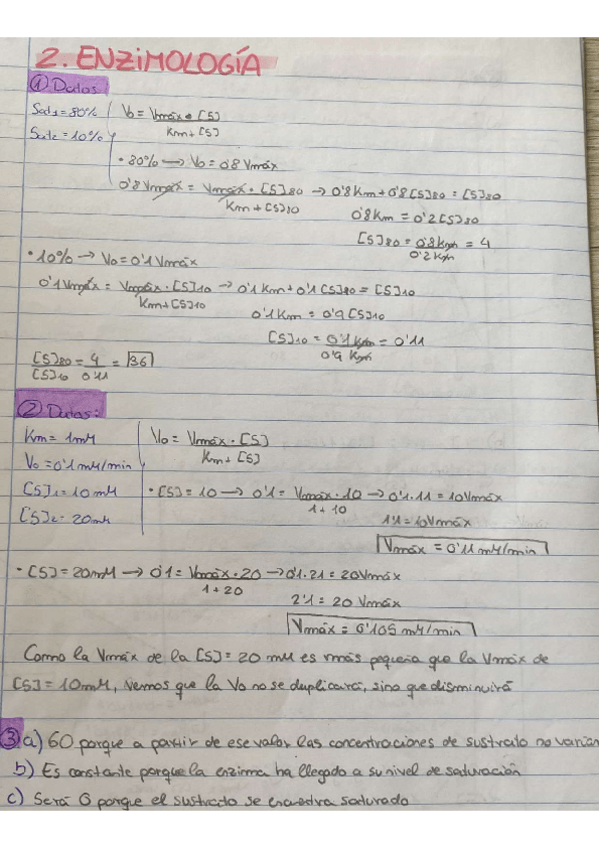 2. ENZIMOLOGÍA
① Datos:
Sat1 = 80%
Sat2 = 10%
Vo = Vmáx · [S] / Km + [S]
· 80% → Vo = 0'8 Vmáx
0'8 Vmáx = Vmáx · [S]80 / Km + [S]10 → 0'8 Km + 0'8 [S]80 = [S]80
0'8 Km = 0'2 [S]80
[S]80 = 0'8 Km / 0'2 Km = 4
· 10% → Vo = 0'1 Vmáx
0'1 Vmáx = Vmáx · [S]10 / Km + [S]10 → 0'1 Km + 0'1 [S]10 = [S]10
0'1 Km = 0'9 [S]10
[S]10 = 0'1 Km / 0'9 Km = 0'11
[S]80 / [S]10 = 4 / 0'11 = 36
② Datos:
Km = 1 mM
Vo = 0'1 mM/min
[S]1 = 10 mM
[S]2 = 20 mM
Vo = Vmáx · [S] / Km + [S]
· [S] = 10 → 0'1 = Vmáx · 10 / 1 + 10 → 0'1 · 11 = 10 Vmáx
1'1 = 10 Vmáx
Vmáx = 0'11 mM/min
· [S] = 20 mM → 0'1 = Vmáx · 20 / 1 + 20 → 0'1 · 21 = 20 Vmáx
2'1 = 20 Vmáx
Vmáx = 0'105 mM/min
Como la Vmáx de la [S] = 20 mM es más pequeña que la Vmáx de
[S] = 10 mM, vemos que la Vo no se duplicará, sino que disminuirá
③ a) 60 porque a partir de ese valor las concentraciones de sustrato no varían
b) Es constante porque la enzima ha llegado a su nivel de saturación
c) Será 0 porque el sustrato se encuentra saturado